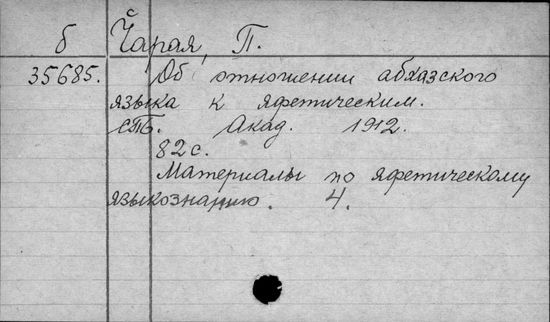 б Чарая, П.
35685. Об отношении абхазского
языка к яфетическим.
СПб. Акад. 1912.
82 с.
Материалы по яфетическому
языкознанию. 4.